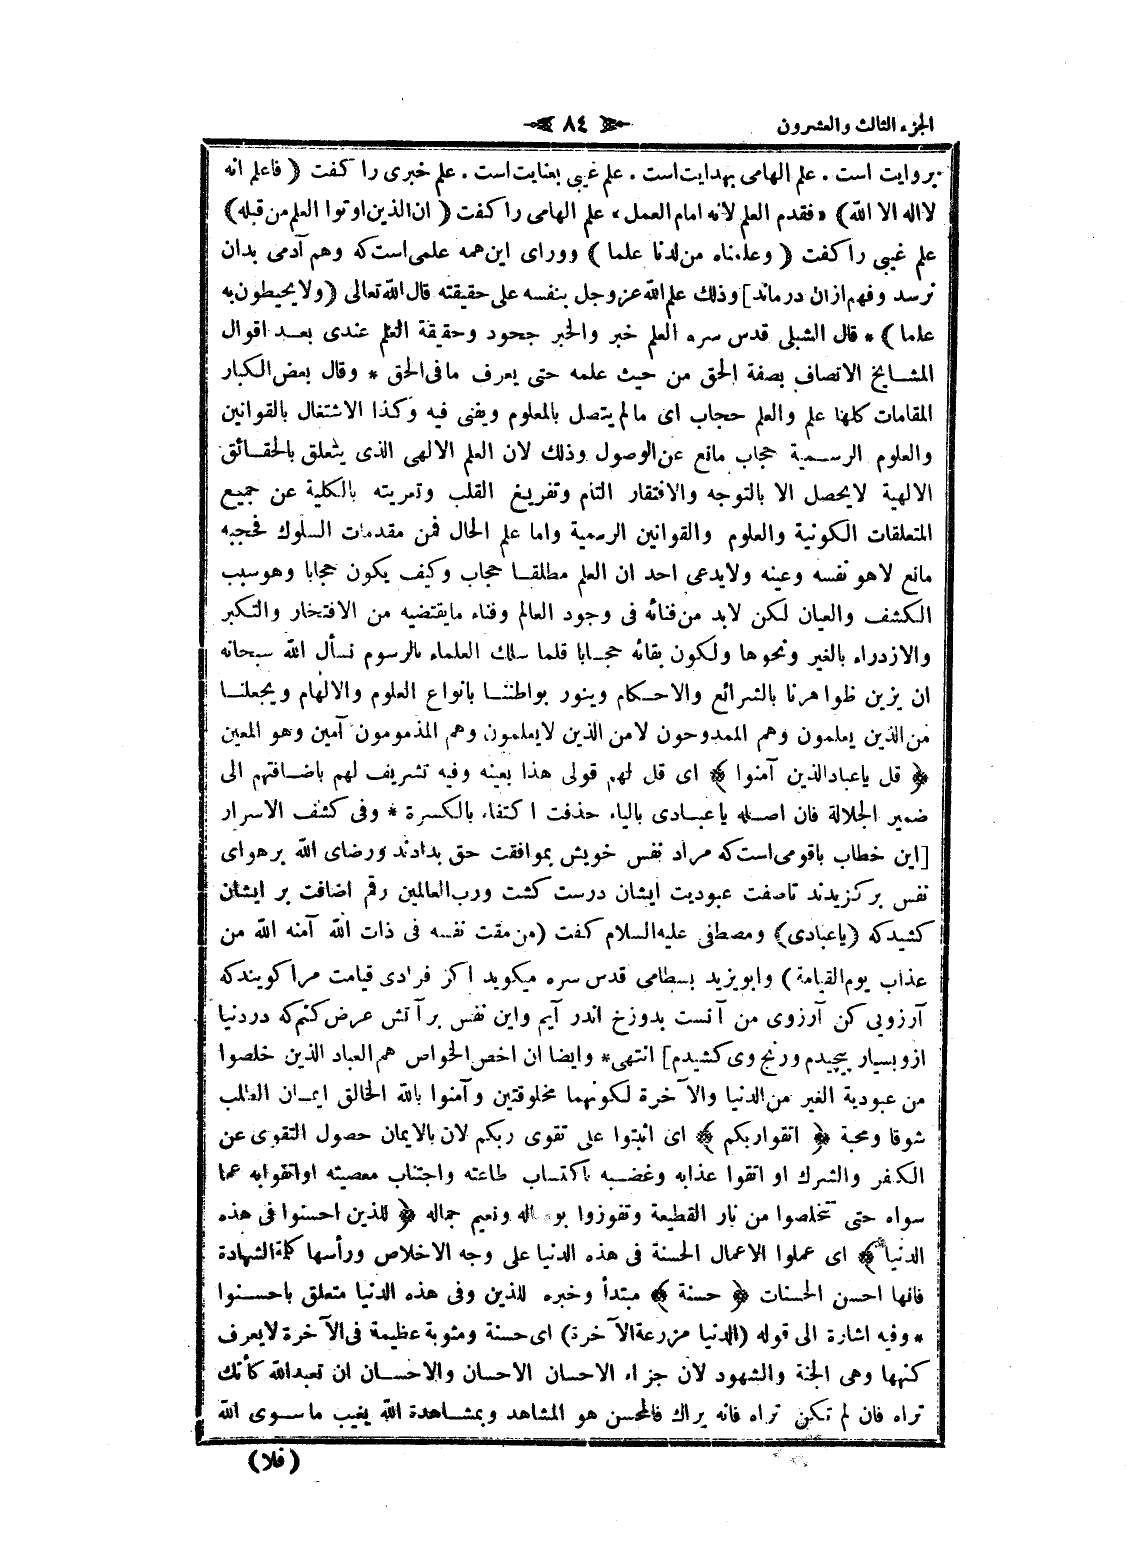 الجزء الثالث والعشرون
٨٤
بروايت است . علم الهامى بهدايت است . علم غيبى بعنايت است . علم خبرى را كفت ( فاعلم انه
لااله الا الله ) « فقدم العلم لانه امام العمل » علم الهامى را كفت ( ان الذين اوتوا العلم من قبله )
علم غيبى را كفت ( وعلمناه من لدنا علما ) وورراى اين همه علمى است كه وهم آدمى بدان
نرسد وفهم ازان درماند] وذلك علم الله عز وجل بنفسه على حقيقته قال الله تعالى ( ولا يحيطون به
علما ) * قال الشبلى قدس سره العلم خبر والخبر جحود وحقيقة العلم عندى بعد اقوال
المشايخ الاتصاف بصفة الحق من حيث علمه حتى يعرف مافى الحق * وقال بعض الكبار
المقامات كلها علم والعلم حجاب اى مالم يتصل بالمعلوم ويفنى فيه وكذا الاشتغال بالقوانين
والعلوم الرسمية حجاب مانع عن الوصول وذلك لان العلم الالهى الذى يتعلق بالحقائق
الالهية لايحصل الا بالتوجه والافتقار التام وتفريغ القلب وتعريته بالكلية عن جميع
المتعلقات الكونية والعلوم والقوانين الرسمية واما علم الحال فمن مقدمات السلوك فحجبه
مانع لاهو نفسه وعينه ولايدعى احد ان العلم مطلقا حجاب وكيف يكون حجابا وهو سبب
الكشف والعيان لكن لابد من فنائه فى وجود العالم وفناء مايقتضيه من الافتخار والتكبر
والازدراء بالغير ونحوها ولكون بقائه حجابا قلما سلك العلماء بالرسوم نسأل الله سبحانه
ان يزين ظواهرنا بالشرائع والاحكام وينور بواطننا بانواع العلوم والالهام ويجعلنا
من الذين يعلمون وهم الممدوحون لامن الذين لايعلمون وهم المذمومون آمين وهو المعين
﴿ قل ياعباد الذين آمنوا ﴾ اى قل لهم قولى هذا بعينه وفيه تشريف لهم باضافتهم الى
ضمير الجلالة فان اصله ياعبادى بالياء حذفت اكتفاء بالكسرة * وفى كشف الاسرار
[اين خطاب باقومى است كه مراد نفس خويش بموافقت حق بدادند ورضاى الله برهواى
نفس بركزيدند تاصفت عبوديت ايشان درست كشت ورب العالمين رقم اضافت بر ايشان
كشيد كه (ياعبادى) ومصطفى عليه السلام كفت (من مقت نفسه فى ذات الله آمنه الله من
عذاب يوم القيامة ) وابويزيد بسطامى قدس سره ميكويد اكر فردى قيامت مرا كويند كه
آرزويى كن آرزوى من آنست بدوزخ اندر آيم واين نفس بر آتش عرض كنم كه در دنيا
ازو بسيار پيچيدم ورنج وى كشيدم] انتهى * وايضا ان اخص الخواص هم العباد الذين خلصوا
من عبودية الغير من الدنيا والآخرة لكونهما مخلوقتين وآمنوا بالله الخالق ايمان الطلب
شوقا ومحبة ﴿ اتقوا ربكم ﴾ اى اثبتوا على تقوى ربكم لان بالايمان حصول التقوى عن
الكفر والشرك او اتقوا عذابه وغضبه باكتساب طاعته واجتناب معصيته او اتقوا به عما
سواه حتى تتخلصوا من نار القطيعة وتفوزوا بوصاله ونعيم جماله ﴿ للذين احسنوا فى هذه
الدنيا ﴾ اى عملوا الاعمال الحسنة فى هذه الدنيا على وجه الاخلاص ورأسها كلمة الشهادة
فانها احسن الحسنات ﴿ حسنة ﴾ مبتدأ وخبره للذين وفى هذه الدنيا متعلق باحسنوا
* وفيه اشارة الى قوله (الدنيا مزرعة الآخرة ) اى حسنة ومثوبة عظيمة فى الآخرة لايعرف
كنهها وهى الجنة والشهود لان جزاء الاحسان الاحسان والاحسان ان تعبد الله كأنك
تراه فان لم تكن تراه فانه يراك فالمحسن هو المشاهد وبمشاهدة الله يغيب ماسوى الله
( فلا )